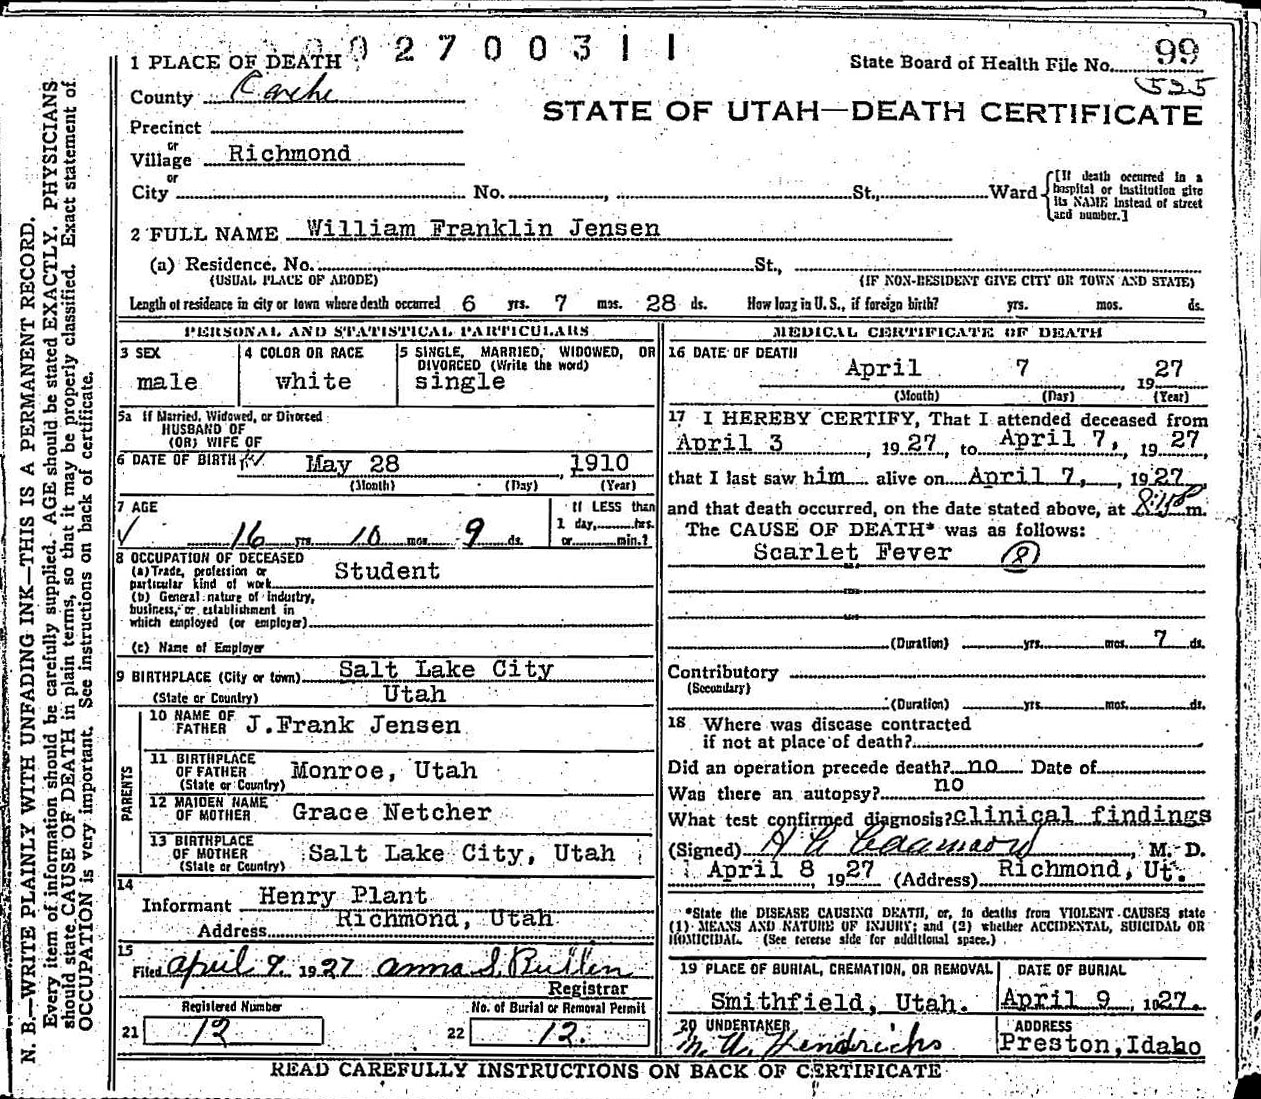 0 0 2 7 0 0 3 1 1
1 PLACE OF DEATH
State Board of Health File No. 99
525
County Cache
STATE OF UTAH—DEATH CERTIFICATE
Precinct
or
Village Richmond
or
City No. , St., Ward
[If death occurred in a hospital or institution give its NAME instead of street and number.]
2 FULL NAME William Franklin Jensen
(a) Residence. No. St.,
(USUAL PLACE OF ABODE) (IF NON-RESIDENT GIVE CITY OR TOWN AND STATE)
Length of residence in city or town where death occurred 6 yrs. 7 mos. 28 ds. How long in U. S., if foreign birth? yrs. mos. ds.
PERSONAL AND STATISTICAL PARTICULARS
3 SEX male
4 COLOR OR RACE white
5 SINGLE, MARRIED, WIDOWED, OR DIVORCED (Write the word) single
5a If Married, Widowed, or Divorced
HUSBAND OF
(OR) WIFE OF
6 DATE OF BIRTH May 28, 1910
(Month) (Day) (Year)
7 AGE 16 yrs. 10 mos. 9 ds.
If LESS than
1 day, hrs.
or min.?
8 OCCUPATION OF DECEASED
(a) Trade, profession or
particular kind of work Student
(b) General nature of industry,
business, or establishment in
which employed (or employer)
(c) Name of Employer
9 BIRTHPLACE (City or town) Salt Lake City
(State or Country) Utah
PARENTS
10 NAME OF FATHER J.Frank Jensen
11 BIRTHPLACE OF FATHER (State or Country) Monroe, Utah
12 MAIDEN NAME OF MOTHER Grace Netcher
13 BIRTHPLACE OF MOTHER (State or Country) Salt Lake City, Utah
14
Informant Henry Plant
Address Richmond, Utah
15
Filed April 9 1927 Anna S. Bullen
Registrar
Registered Number
21 12
No. of Burial or Removal Permit
22 12.
MEDICAL CERTIFICATE OF DEATH
16 DATE OF DEATH
April 7, 1927
(Month) (Day) (Year)
17 I HEREBY CERTIFY, That I attended deceased from
April 3, 1927, to April 7, 1927,
that I last saw him alive on April 7, 1927,
and that death occurred, on the date stated above, at m.
The CAUSE OF DEATH* was as follows:
Scarlet Fever 8
(Duration) yrs. mos. 7 ds.
Contributory
(Secondary)
(Duration) yrs. mos. ds.
18 Where was disease contracted
if not at place of death?
Did an operation precede death? no Date of
Was there an autopsy? no
What test confirmed diagnosis? clinical findings
(Signed) , M. D.
April 8, 1927 (Address) Richmond, Ut.
*State the DISEASE CAUSING DEATH, or, in deaths from VIOLENT CAUSES state
(1) MEANS AND NATURE OF INJURY; and (2) whether ACCIDENTAL, SUICIDAL OR
HOMICIDAL. (See reverse side for additional space.)
19 PLACE OF BURIAL, CREMATION, OR REMOVAL
Smithfield, Utah.
DATE OF BURIAL
April 9, 1927.
20 UNDERTAKER
M. W. Hendricks
ADDRESS
Preston, Idaho
READ CAREFULLY INSTRUCTIONS ON BACK OF CERTIFICATE
N. B.—WRITE PLAINLY WITH UNFADING INK—THIS IS A PERMANENT RECORD.
Every item of information should be carefully supplied. AGE should be stated EXACTLY. PHYSICIANS
should state CAUSE OF DEATH in plain terms, so that it may be properly classified. Exact statement of
OCCUPATION is very important. See instructions on back of certificate.